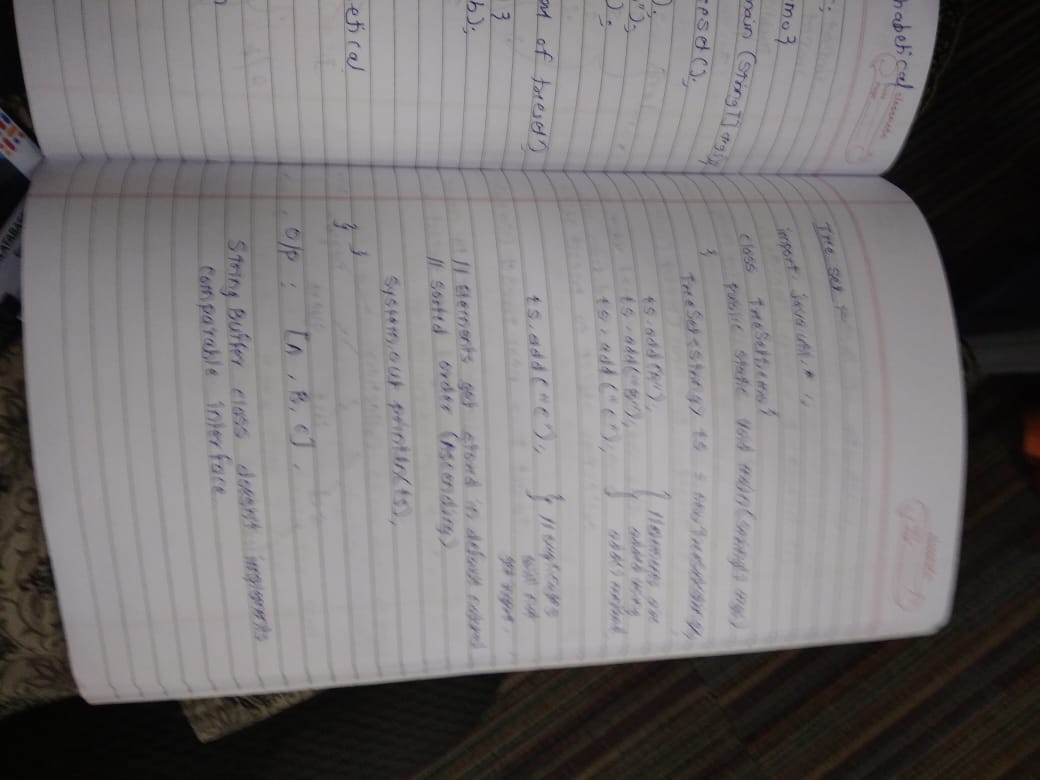 habetical
emo}
main (String[] args)
eeset();
");
);
of treeset")
}
b);
etical
Tree Set :-
import java.util.*;
class TreeSetDemo{
public static void main(String[] args)
{
TreeSet<String> ts = new TreeSet<String>();
ts.add("A");
ts.add("B"); } // elements are added using
ts.add("C"); add() method
ts.add("C"); } // duplicates will not get
// elements get stored in default natural
// sorted order (Ascending)
System.out.println(ts);
}
}
O/p : [A, B, C].
String Buffer class doesn't implements
Comparable interface.